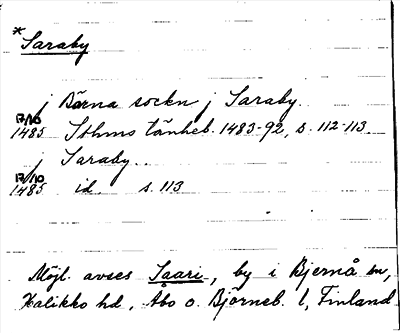 * Saraby
j Bärna sockn j Saraby.
17/10
1485 Sthms tänkeb. 1483-92, s. 112-113
j Saraby..
17/10
1485 id. s. 113
Möjl. avses Saari, by i Bjernå sn,
Halikko hd, Åbo o. Björneb. l, Finland